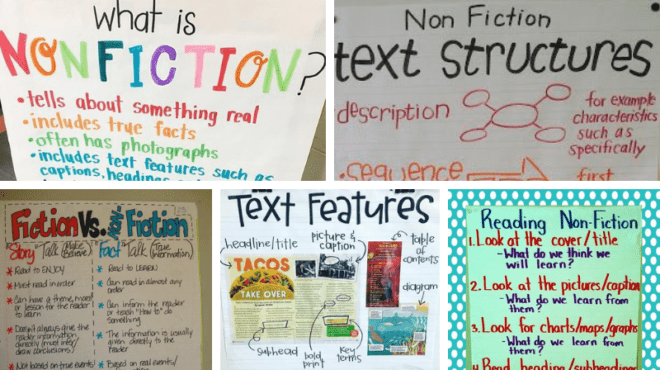 What is
NONFICTION?
• tells about something real
• includes true facts
• often has photographs
• includes text features such as
captions, headings
Non Fiction
text structures
description
for example
characteristics
such as
specifically
• sequence
first
Fiction Vs. Non-Fiction
Story Talk (Make Believe)
Fact Talk (True Information)
* Read to ENJOY
* Must read in order
* Can have a theme, moral
or lesson for the reader
to learn
* Doesn't always give the
reader information
directly (must infer/
draw conclusions)
* Not based on true events/
* Read to LEARN
* Can read in almost any
order
* Can inform the reader
or teach "How to" do
something
* The information is usually
given directly to the
reader
* Based on real events/
Text Features
headline/title
picture &
caption
table
of
contents
diagram
TACOS
TAKE OVER
subhead
bold
print
key
terms
Reading Non-Fiction
1. Look at the cover/title
- What do we think we
will learn?
2. Look at the pictures/caption
- What do we learn from
them?
3. Look for charts/maps/graphs
- What do we learn from
them?
4. Read heading/subheadings